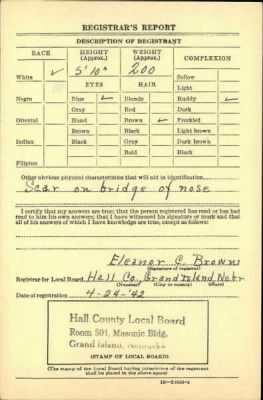 REGISTRAR'S REPORT
DESCRIPTION OF REGISTRANT
RACE HEIGHT (Approx.) WEIGHT (Approx.) COMPLEXION
White ✓ 5' 10" 200 Sallow
Light
EYES HAIR
Negro Blue ✓ Blonde Ruddy ✓
Gray Red Dark
Oriental Hazel Brown ✓ Freckled
Brown Black Light brown
Indian Black Gray Dark brown
Bald Black
Filipino
Other obvious physical characteristics that will aid in identification
Scar on bridge of nose
I certify that my answers are true; that the person registered has read or has had
read to him his own answers; that I have witnessed his signature or mark and that
all of his answers of which I have knowledge are true, except as follows:
Eleanor C. Brown
(Signature of registrar)
Registrar for Local Board Hall Co. Grand Island, Nebr
(Number) (City or county) (State)
Date of registration 4-24-'42
Hall County Local Board
Room 501, Masonic Bldg.
Grand Island, Nebraska
(STAMP OF LOCAL BOARD)
(The stamp of the Local Board having jurisdiction of the registrant
shall be placed in the above space)